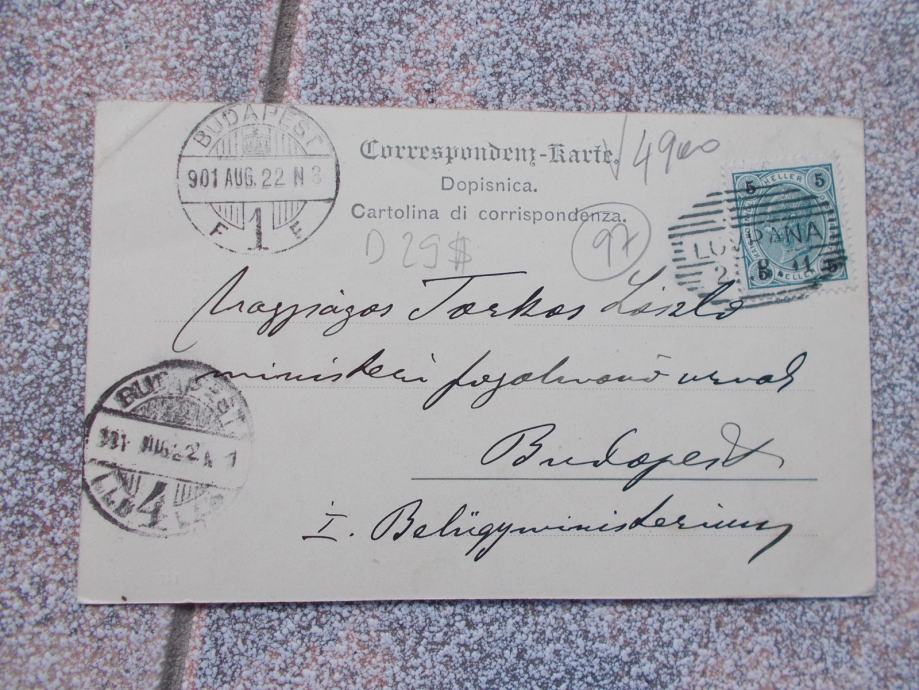 BUDAPEST
901 AUG. 22 N 8
F 1 E
Correspondenz-Karte.
Dopisnica.
Cartolina di corrispondenza.
4900
D 29 $
97
5 HELLER 5
LOVRANA
5 HELLER 5
Nagyságos Torkos László
ministeri fogalmazó urnak
Budapest
I. Belügyministerium
BUDAPEST
901 AUG. 22
4